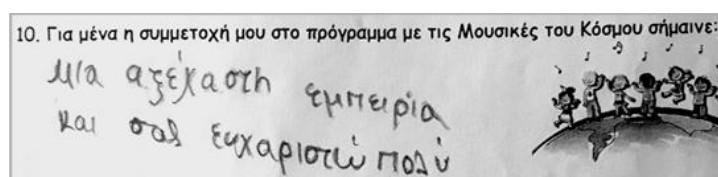 10. Για μένα η συμμετοχή μου στο πρόγραμμα με τις Μουσικές του Κόσμου σήμαινε:
Μια αξέχαστη εμπειρία
και σας ευχαριστώ πολύ